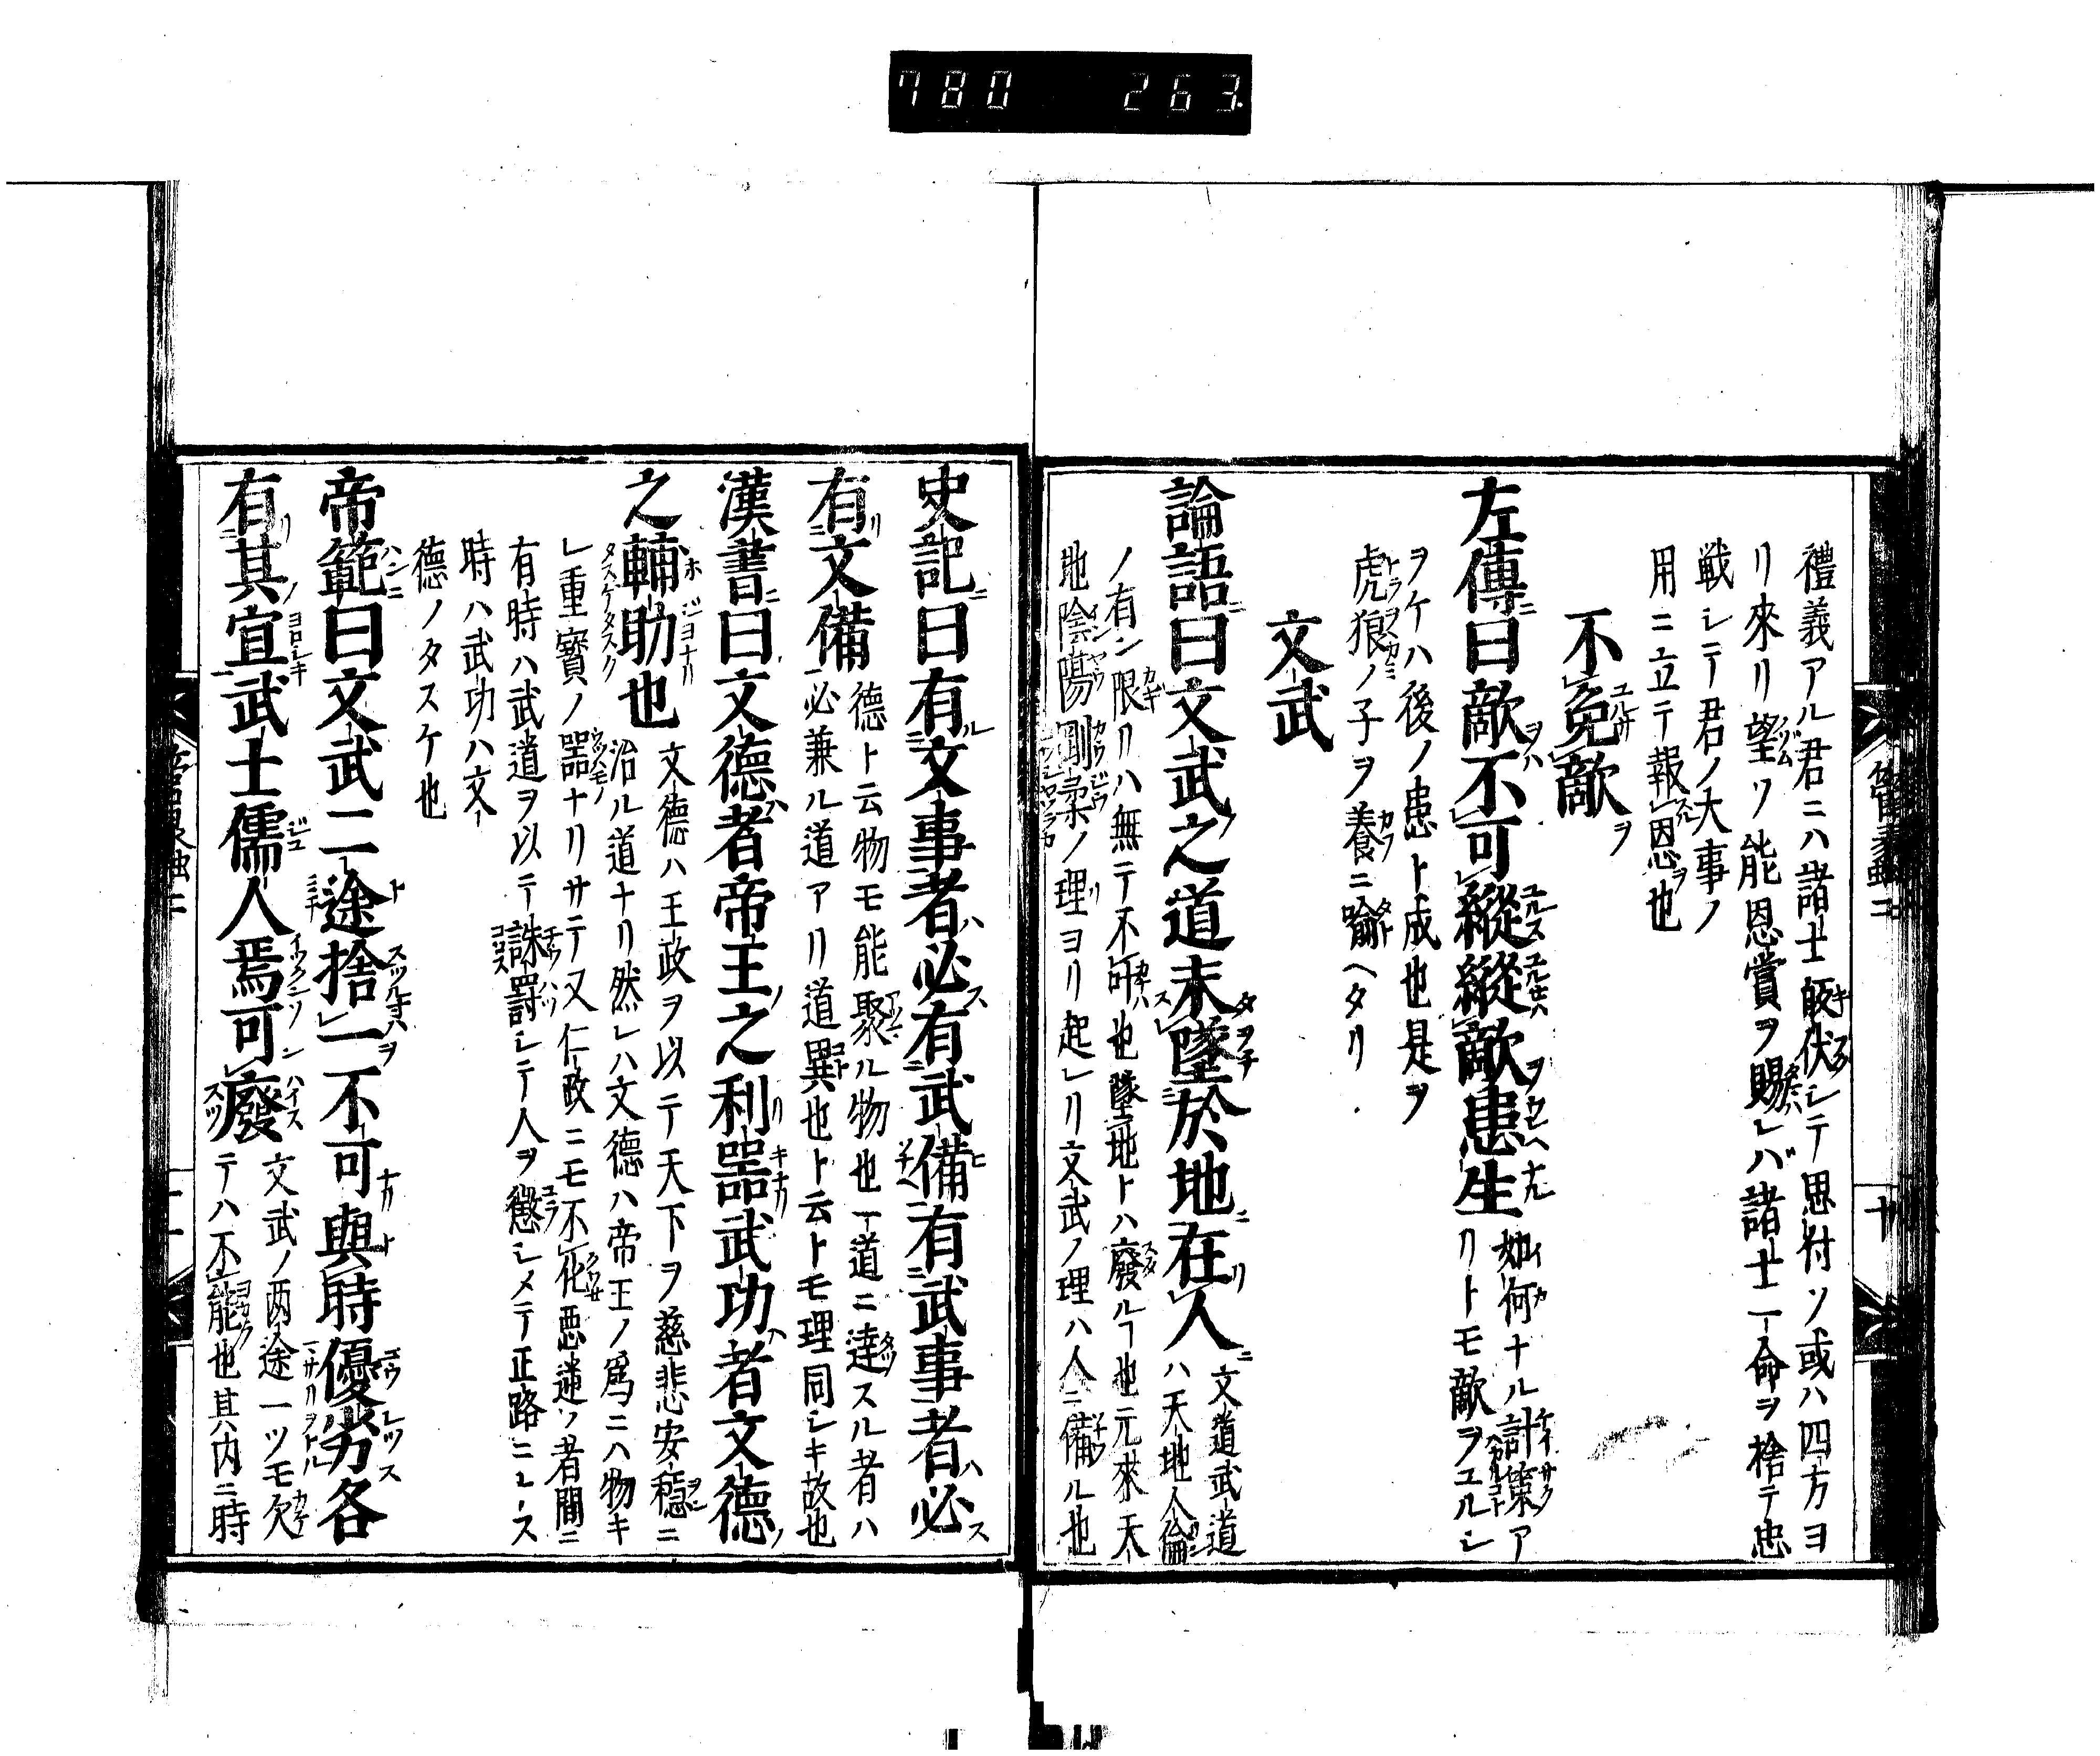 780 263
禮義アル君ニハ諸士皈伏シテ思付ソ或ハ四方ヨ
リ來リ望ソ能恩賞ヲ賜レバ諸士一命ヲ捨テ忠
戦シテ君ノ大事ノ
用ニ立テ報恩也
不免敵
左傳曰敵不可縱縱敵患生
如何ナル計策ア
リトモ敵ヲユルシ
ヲケハ後ノ患ト成也是ヲ
虎狼ノ子ヲ養ニ喩ヘタリ
文武
論語曰文武之道未墜於地在人
文道武道
ハ天地人倫
ノ有ン限リハ無テ不叶也墜地トハ廢ルヿ也元來天
地陰陽剛柔ノ理ヨリ起レリ文武ノ理ハ人ニ備ル也
史記曰有文事者必有武備有武事者必
有文備
德ト云物モ能聚ル物也一道ニ達スル者ハ
必兼ル道アリ道異也ト云トモ理同シキ故也
漢書曰文德者帝王之利噐武功者文德
之輔助也
文德ハ王政ヲ以テ天下ヲ慈悲安穩ニ
治ル道ナリ然レハ文德ハ帝王ノ爲ニハ物キ
レ重寳ノ噐ナリサテ又仁政ニモ不化惡逆ソ者間ニ
有時ハ武道ヲ以テ誅罸シテ人ヲ懲シメテ正路ニレース
時ハ武功ハ文
德ノタスケ也
帝範曰文武二途捨一不可與時優劣各
有其宜武士儒人焉可廢
文武ノ两途一ツモ欠
テハ不能也其内ニ時